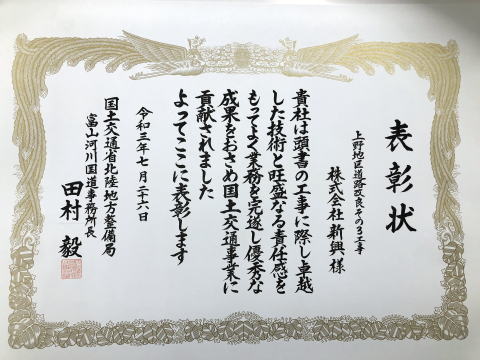 表彰状
上野地区道路改良その3工事
株式会社新興様
貴社は頭書の工事に際し卓越
した技術と旺盛なる責任感を
もってよく業務を完遂し優秀な
成果をおさめ国土交通事業に
貢献されました
よってここに表彰します
令和三年七月二十六日
国土交通省北陸地方整備局
富山河川国道事務所長
田村毅